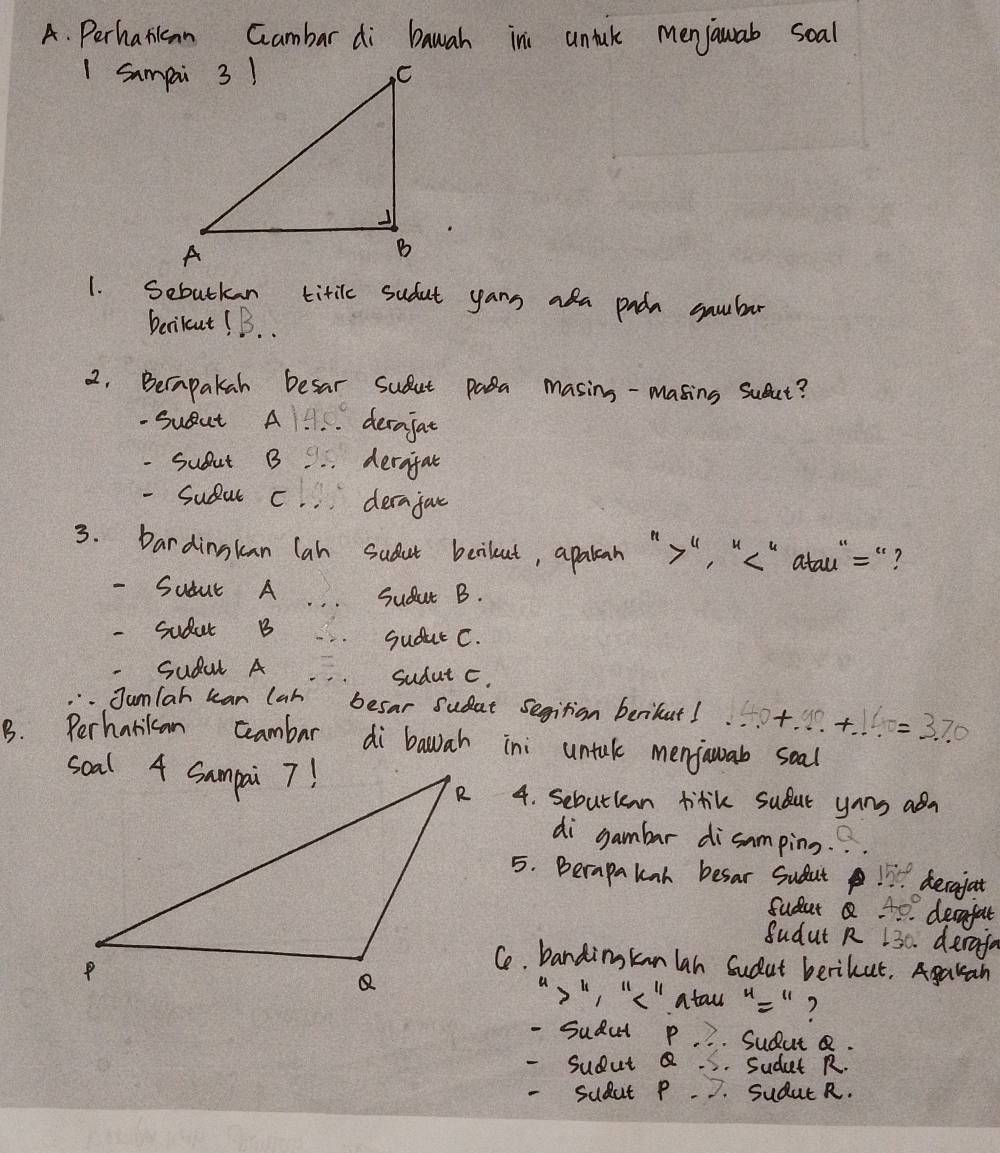 A. Perhatikan Gambar di bawah ini untuk menjawab soal
1 sampai 3 !
C
A
B
1. Sebutkan titik sudut yang ada pada gambar
berikut ! B...
2. Berapakah besar sudut pada masing - masing sudut?
- Sudut A 140° derajat
- Sudut B 90° derajat
- Sudut C ... derajat
3. bandingkan lah sudut berikut, apakah ">", "<" atau "="?
- Sudut A ... Sudut B.
- Sudut B ... Sudut C.
- Sudut A .=. Sudut C.
∴ Jumlah kan lah besar sudut segitiga berikut ! 140 + 90 + 140 = 370
B. Perhatikan Gambar di bawah ini untuk menjawab soal
soal 4 sampai 7 !
R
P
Q
4. Sebutkan titik sudut yang ada
di gambar di samping. Q..
5. Berapa kah besar Sudut P 150° derajat
Sudut Q 40° derajat
Sudut R 130. deraja
6. bandingkan lah Sudut berikut. Apakah
">", "<" atau "=" ?
- Sudut P .>. Sudut Q.
- Sudut Q .<. Sudut R.
- Sudut P .>. Sudut R.